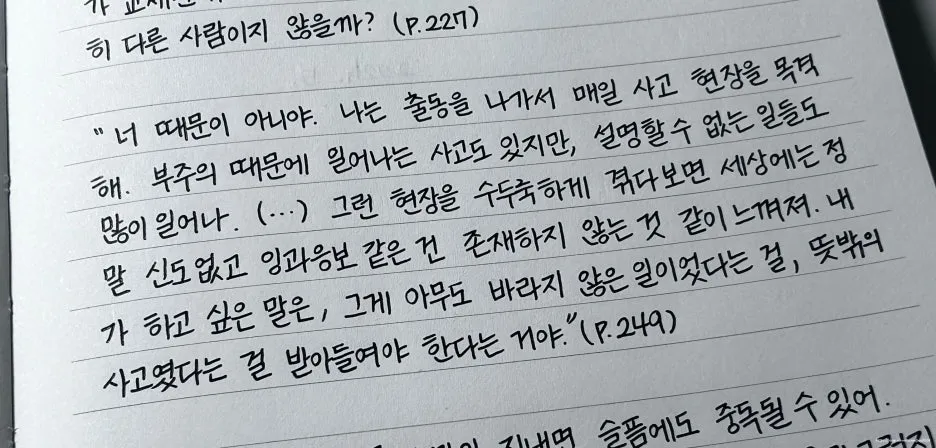 히 다른 사람이지 않을까? (P.227)
" 너 때문이 아니야. 나는 출동을 나가서 매일 사고 현장을 목격
해. 부주의 때문에 일어나는 사고도 있지만, 설명할 수 없는 일들도
많이 일어나. (...) 그런 현장을 수두룩하게 겪다보면 세상에는 정
말 신도 없고 인과응보 같은 건 존재하지 않는 것 같이 느껴져. 내
가 하고 싶은 말은, 그게 아무도 바라지 않은 일이었다는 걸, 뜻밖의
사고였다는 걸 받아들여야 한다는 거야." (P.249)
지내면 슬픔에도 중독될 수 있어.